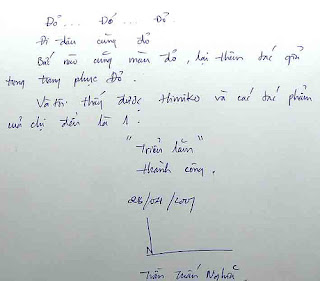 Đỏ... Đỏ... Đỏ.
Đi đâu cũng đỏ
Bức nào cũng màu đỏ, lại thêm tác giả
trong trang phục Đỏ.
Và tôi thấy được Himiko và các tác phẩm
của chị đều là 1.
"Triển lãm"
thành công.
28/04/2007
Trần Tuấn Nghĩa